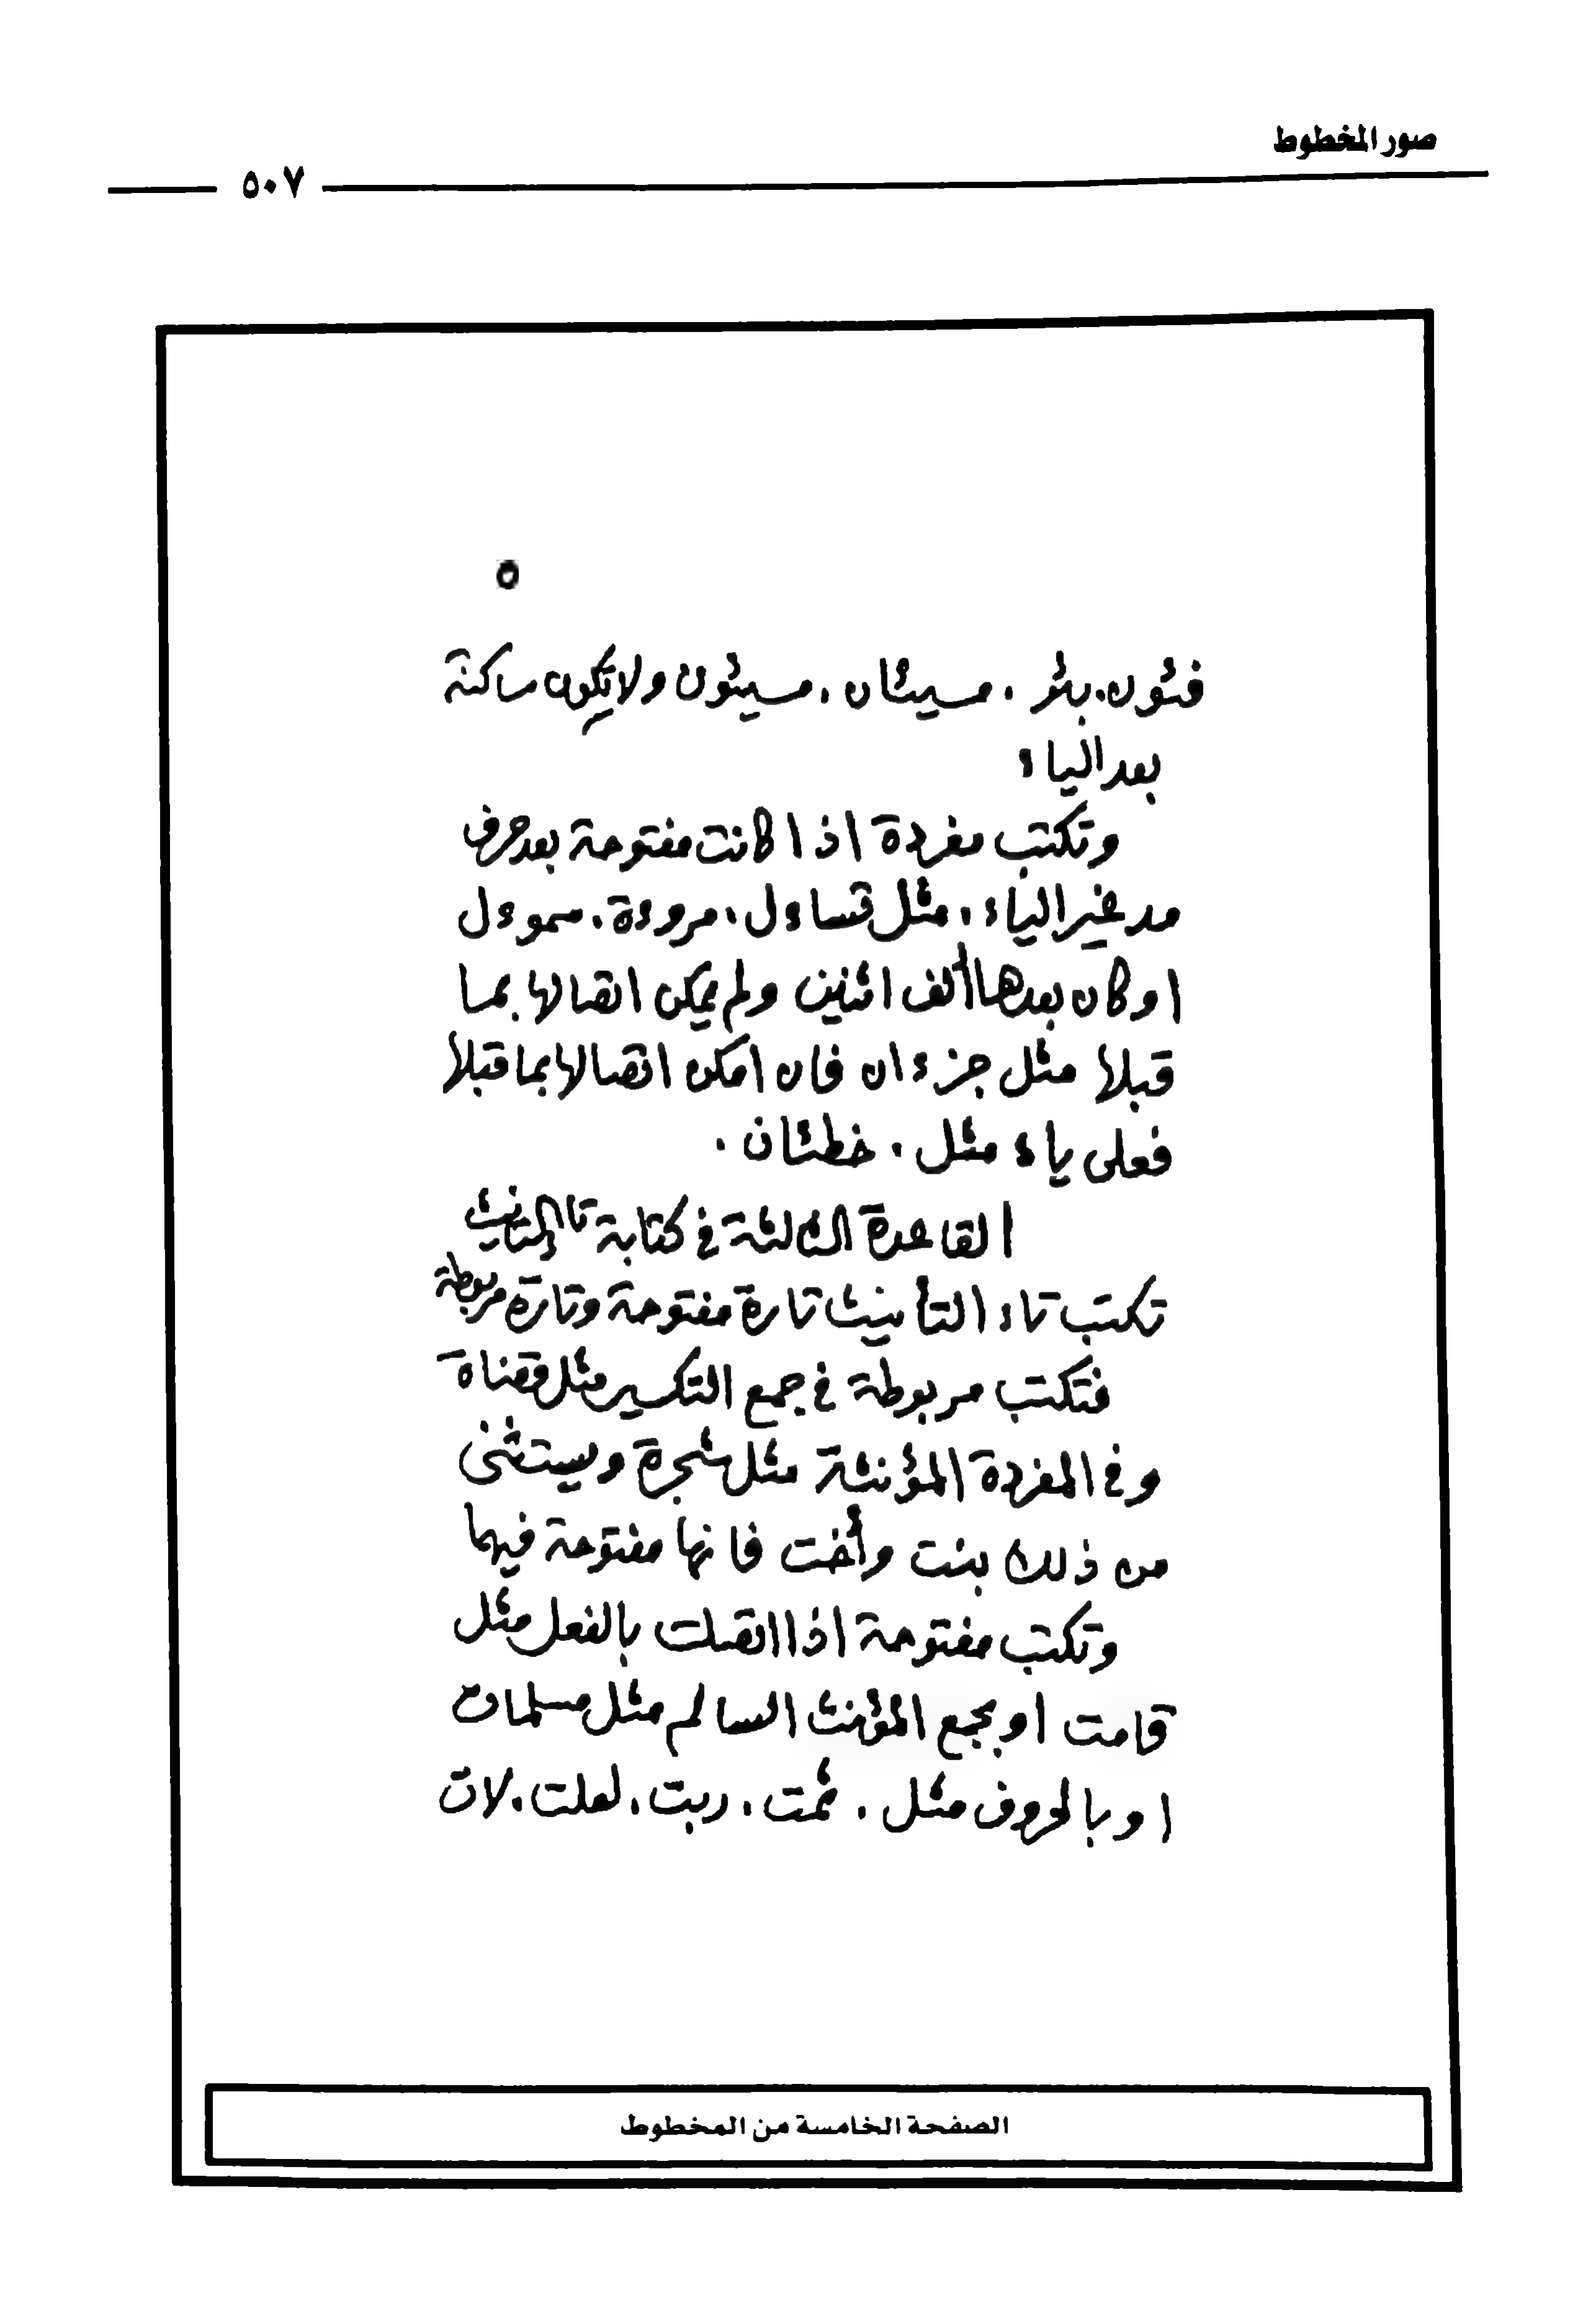 صور المخطوط
٥٠٧
٥
فئون. بئر . مسيئان . مسيئون ولا تكون ساكنة
بعد الياء
وتكتب مفردة اذا كانت مفتوحة بعد حرف
مد غير الياء . مثل تساءل . مروءة . سموءل
او كان بعدها ألف اثنين ولم يمكن اتصالها بما
قبلها مثل جزءان فان امكن اتصالها بما قبلها
فعلى ياء مثل . خطئان .
القاعدة الثالثة في كتابة تاء التانيث
تكتب تاء التأنيث تارة مفتوحة وتارة مربوطة
فتكتب مربوطة في جمع التكسير مثل قضاة
وفي المفردة المؤنثة مثل شجرة ويستثنى
من ذلك بنت وأخت فانها مفتوحة فيهما
وتكتب مفتوحة اذا اتصلت بالفعل مثل
قامت او بجمع المؤنث السالم مثل مسلمات
او بالحروف مثل . ثمت . ربت . لعلت . لات
الصفحة الخامسة من المخطوط